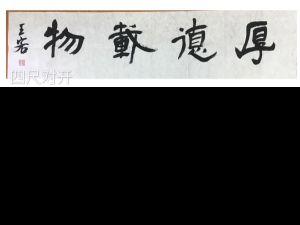 厚德載物
四尺对开